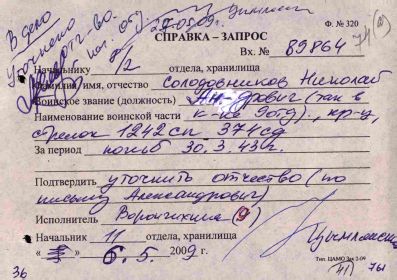 В дело
уточнено
29.05.09г.
Ф. № 320
СПРАВКА – ЗАПРОС
74
Вх. № 89864
Начальнику 1/2 отдела, хранилища
Фамилия, имя, отчество Солодовников Николай
Воинское звание (должность) (так в
Наименование воинской части к-ке 9отд), кр-ц,
стрелок 1242сп 374сд
За период погиб 30.3.43г.
Подтвердить уточнить отчество (по
письму Александрович)
Исполнитель Ворончихина (9)
Начальник 11 отдела, хранилища
6.5 2009г.
Тип. ЦАМО Зак 2-09
36
41
761